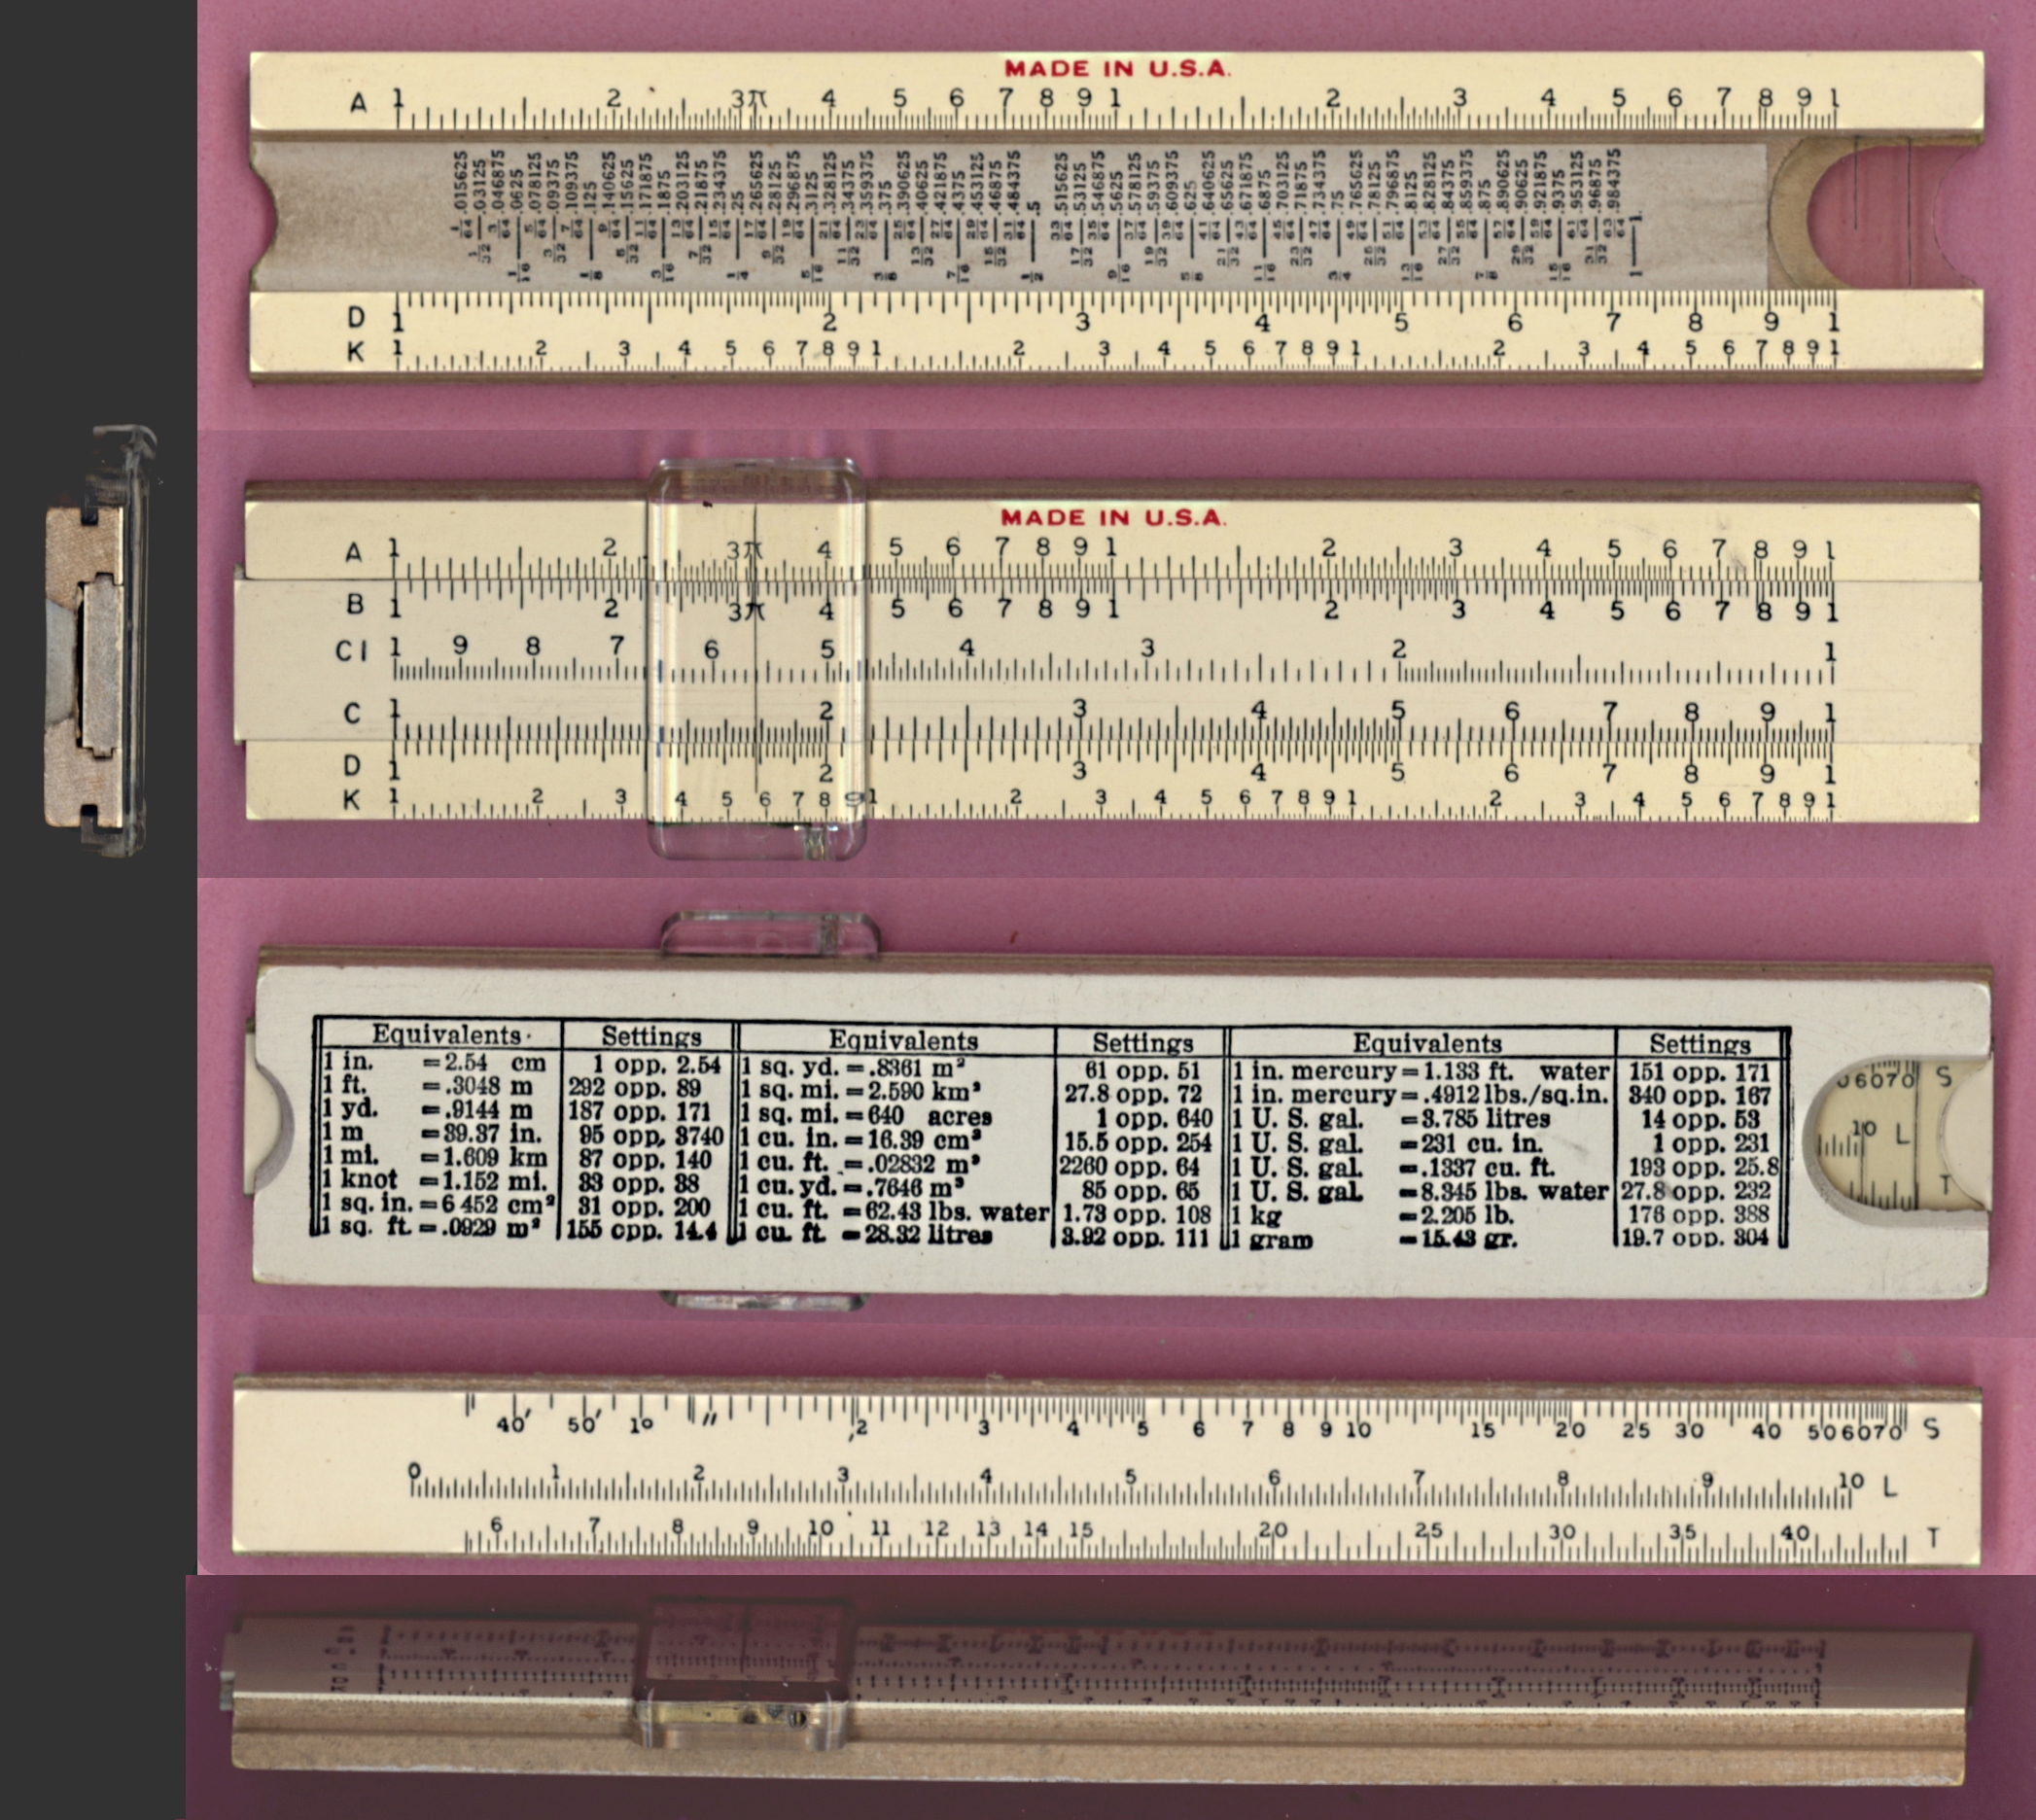 MADE IN U.S.A.
A 1 2 3 π 4 5 6 7 8 9 1 2 3 4 5 6 7 8 9 1
1/64 .015625
1/32 .03125
3/64 .046875
1/16 .0625
5/64 .078125
3/32 .09375
7/64 .109375
1/8 .125
9/64 .140625
5/32 .15625
11/64 .171875
3/16 .1875
13/64 .203125
7/32 .21875
15/64 .234375
1/4 .25
17/64 .265625
9/32 .28125
19/64 .296875
5/16 .3125
21/64 .328125
11/32 .34375
23/64 .359375
3/8 .375
25/64 .390625
13/32 .40625
27/64 .421875
7/16 .4375
29/64 .453125
15/32 .46875
31/64 .484375
1/2 .5
33/64 .515625
17/32 .53125
35/64 .546875
9/16 .5625
37/64 .578125
19/32 .59375
39/64 .609375
5/8 .625
41/64 .640625
21/32 .65625
43/64 .671875
11/16 .6875
45/64 .703125
23/32 .71875
47/64 .734375
3/4 .75
49/64 .765625
25/32 .78125
51/64 .796875
13/16 .8125
53/64 .828125
27/32 .84375
55/64 .859375
7/8 .875
57/64 .890625
29/32 .90625
59/64 .921875
15/16 .9375
61/64 .953125
31/32 .96875
63/64 .984375
1 1.
D 1 2 3 4 5 6 7 8 9 1
K 1 2 3 4 5 6 7 8 9 1 2 3 4 5 6 7 8 9 1 2 3 4 5 6 7 8 9 1
MADE IN U.S.A.
A 1 2 3 π 4 5 6 7 8 9 1 2 3 4 5 6 7 8 9 1
B 1 2 3 π 4 5 6 7 8 9 1 2 3 4 5 6 7 8 9 1
CI 1 9 8 7 6 5 4 3 2 1
C 1 2 3 4 5 6 7 8 9 1
D 1 2 3 4 5 6 7 8 9 1
K 1 2 3 4 5 6 7 8 9 1 2 3 4 5 6 7 8 9 1 2 3 4 5 6 7 8 9 1
Equivalents Settings Equivalents Settings Equivalents Settings
1 in. =2.54 cm 1 opp. 2.54 1 sq. yd. =.8361 m² 61 opp. 51 1 in. mercury=1.133 ft. water 151 opp. 171
1 ft. =.3048 m 292 opp. 89 1 sq. mi. =2.590 km² 27.8 opp. 72 1 in. mercury=.4912 lbs./sq.in. 340 opp. 167
1 yd. =.9144 m 187 opp. 171 1 sq. mi. =640 acres 1 opp. 640 1 U. S. gal. =3.785 litres 14 opp. 53
1 m =39.37 in. 95 opp. 3740 1 cu. in. =16.39 cm³ 15.5 opp. 254 1 U. S. gal. =231 cu. in. 1 opp. 231
1 mi. =1.609 km 87 opp. 140 1 cu. ft. =.02832 m³ 2260 opp. 64 1 U. S. gal. =.1337 cu. ft. 193 opp. 25.8
1 knot =1.152 mi. 33 opp. 38 1 cu. yd. =.7646 m³ 85 opp. 65 1 U. S. gal. =8.345 lbs. water 27.8 opp. 232
1 sq. in. =6 452 cm² 31 opp. 200 1 cu. ft. =62.43 lbs. water 1.73 opp. 108 1 kg =2.205 lb. 176 opp. 388
1 sq. ft. =.0929 m² 155 opp. 14.4 1 cu. ft. =28.32 litres 3.92 opp. 111 1 gram =15.43 gr. 19.7 opp. 304
6070 S
10 L
T
40′ 50′ 1° ″ ′2 3 4 5 6 7 8 9 10 15 20 25 30 40 50 60 70 S
0 1 2 3 4 5 6 7 8 9 10 L
6 7 8 9 10 11 12 13 14 15 20 25 30 35 40 T